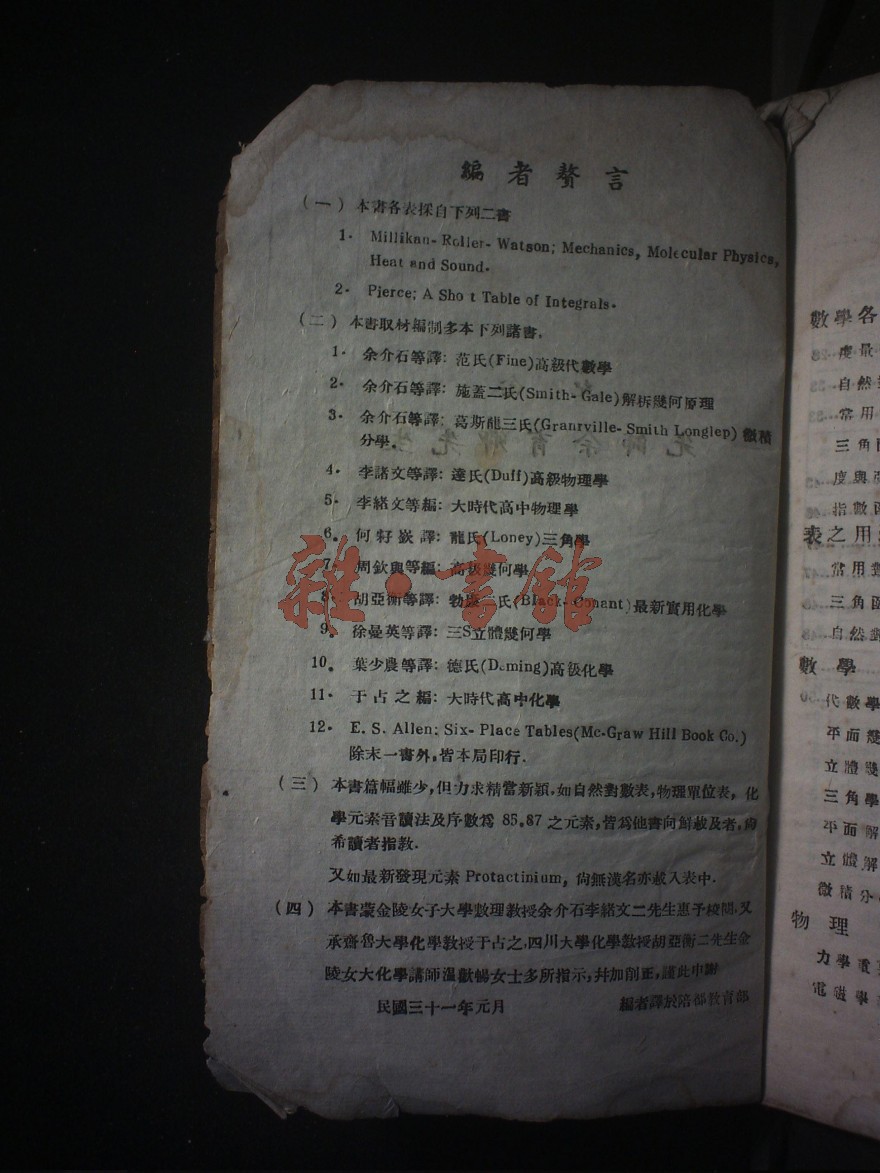 編者贅言
(一) 本書各表採自下列二書
1. Millikan- Roller- Watson; Mechanics, Molecular Physics,
Heat and Sound.
2. Pierce; A Sho t Table of Integrals.
(二) 本書取材編制多本下列諸書.
1. 余介石等譯: 范氏(Fine)高級代數學
2. 余介石等譯: 施蓋二氏(Smith-Gale)解析幾何原理
3. 余介石等譯: 葛斯龍三氏(Granrville-Smith Longlep)微積
分學.
4. 李諸文等譯: 達氏(Duff)高級物理學
5. 李緒文等編: 大時代高中物理學
6. 何籽嶔譯: 龍氏(Loney)三角學
7. 周欽輿等編: 高級幾何學
8. 胡亞衡等譯: 勃康二氏(Black-Conant)最新實用化學
9. 徐曼英等譯: 三S立體幾何學
10. 葉少農等譯: 德氏(Deming)高級化學
11. 于占之編: 大時代高中化學
12. E. S. Allen: Six- Place Tables(Mc-Graw Hill Book Co.)
除末一書外,皆本局印行.
(三) 本書篇幅雖少,但力求精當新穎,如自然對數表,物理單位表, 化
學元素音讀法及序數爲 85,87 之元素,皆爲他書向鮮載及者,尙
希讀者指教.
又如最新發現元素 Protactinium, 尙無漢名亦載入表中.
(四) 本書蒙金陵女子大學數理教授余介石李緒文二先生惠予校閱,又
承齋魯大學化學教授于占之,四川大學化學教授胡亞衡二先生金
陵女大化學講師溫歡暢女士多所指示,幷加削正,謹此申謝
民國三十一年元月 編者譯於陪都教育部
雜·書館
數學各
度量
自然
常用
三角
度與
指數
表之用
常用對
三角函
自然對
數學
代數學
平面幾
立體幾
三角學
平面解
立體解
微積分
物理
力學
電磁學